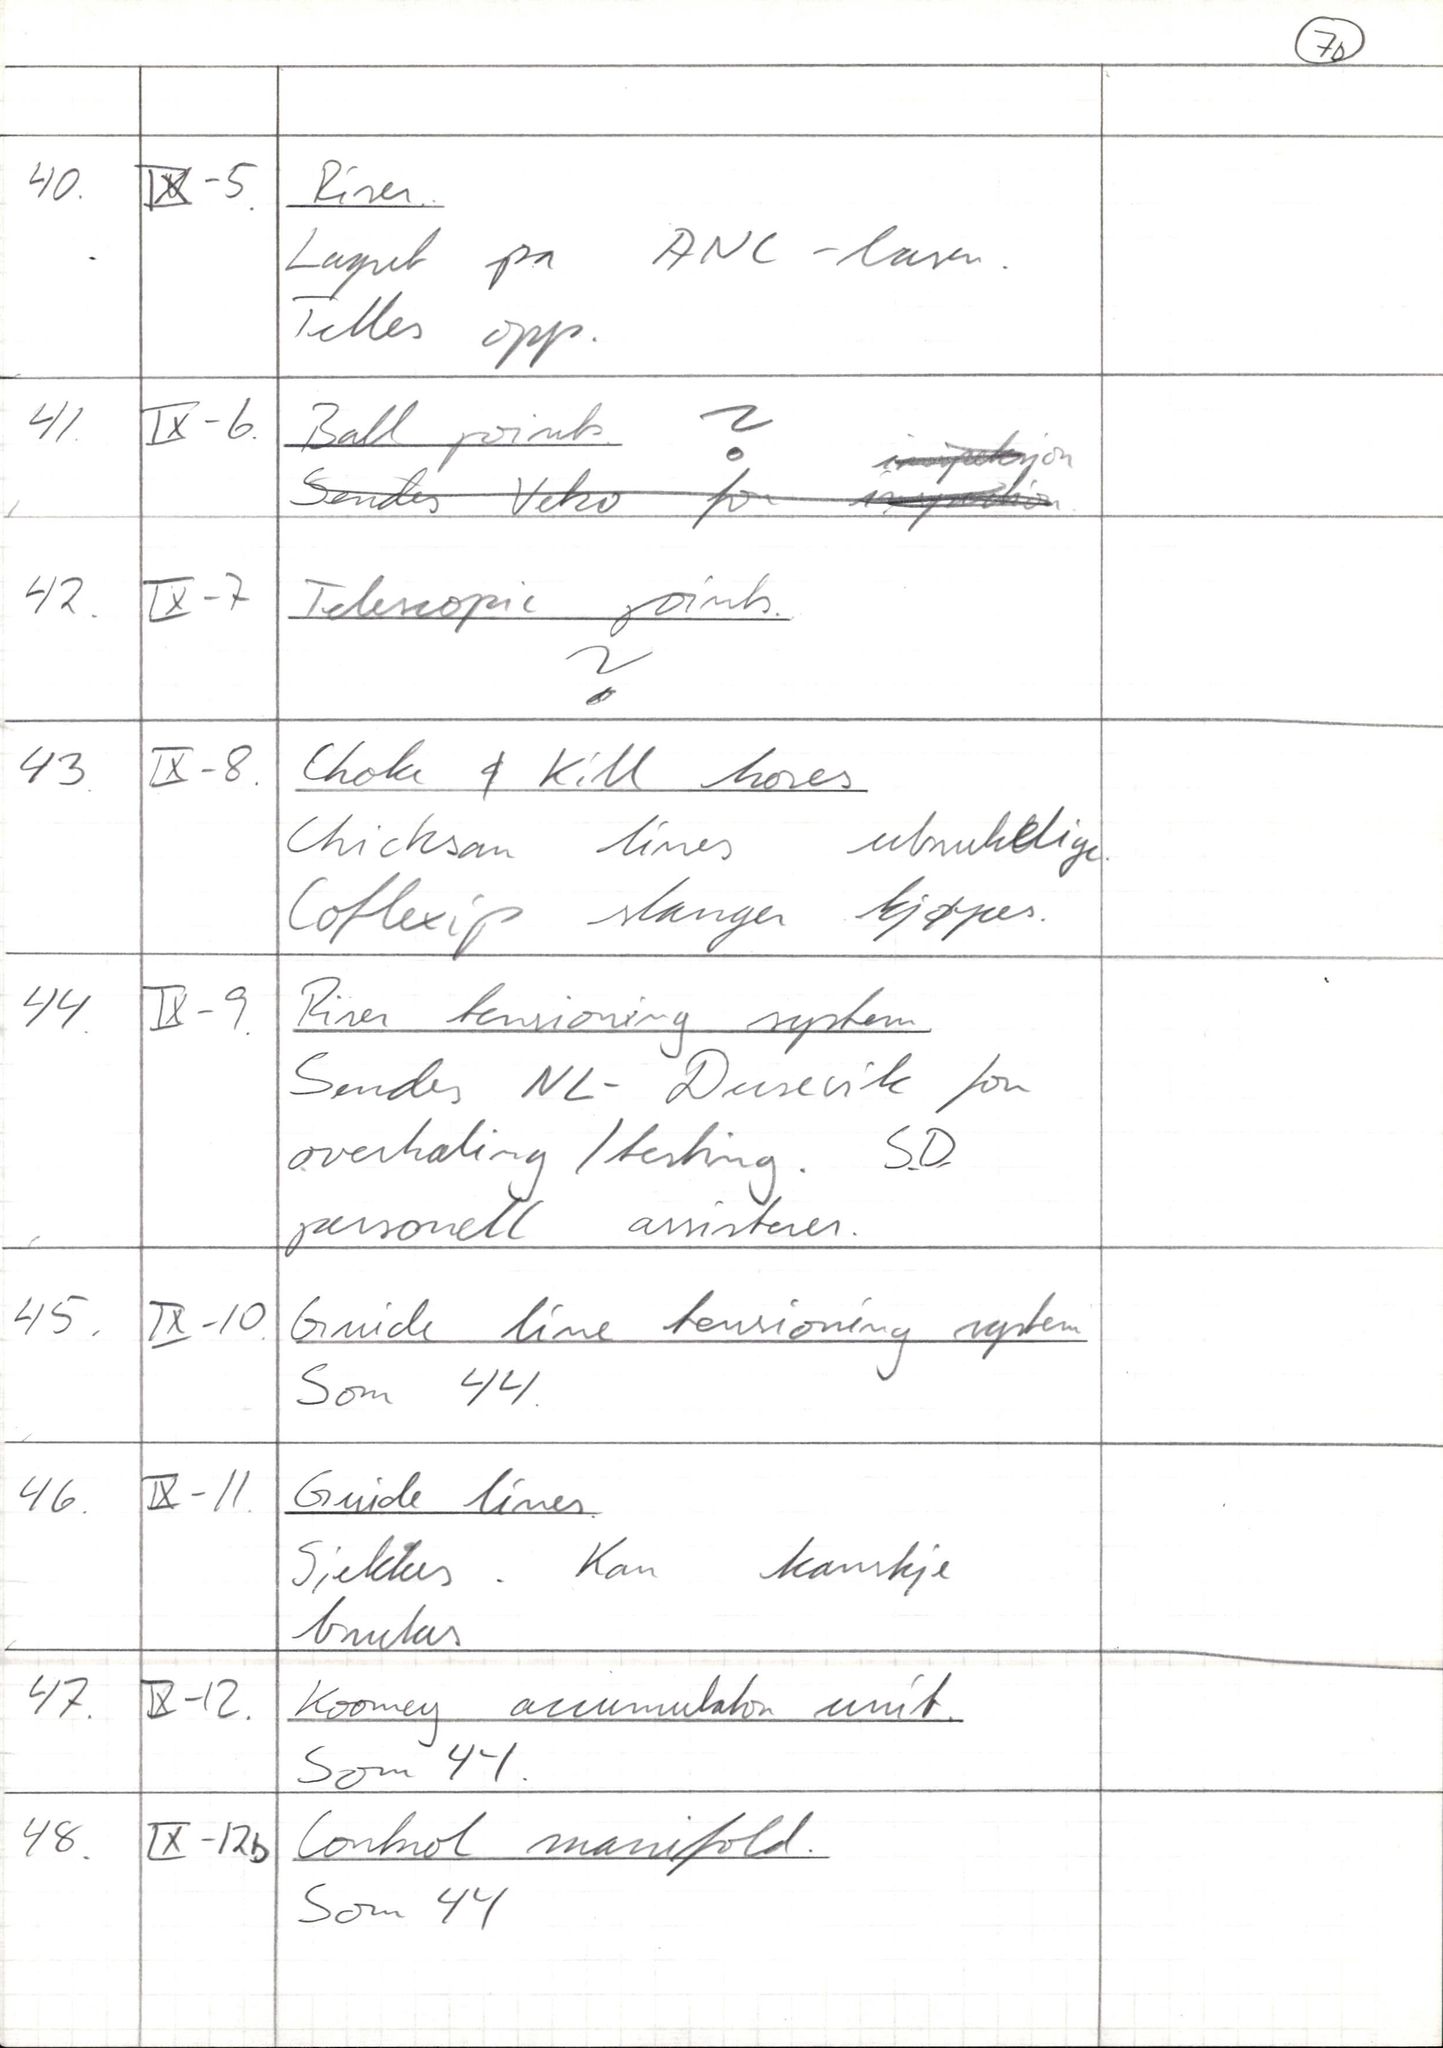 7b
40. IX-5. Riser.
Lagret på ANC-basen.
Telles opp.
41. IX-6. Ball joints. ?
inspeksjon
Sendes Veko for inspection
42. IX-7 Telescopic joints.
?
43 IX-8. Choke & Kill hoses
Chicksan lines ubrukelige.
Coflexip slanger kjøpes.
44. IX-9. Riser tensioning system
Sendes NL- Dusevik for
overhaling / testing. S.D.
personell assisterer.
45. IX-10. Guide line tensioning system
Som 44.
46. IX-11. Guide lines.
Sjekkes. Kan kanskje
brukes
47. IX-12. Koomey accumulator unit.
Som 44.
48. IX-12b Control manifold.
Som 44